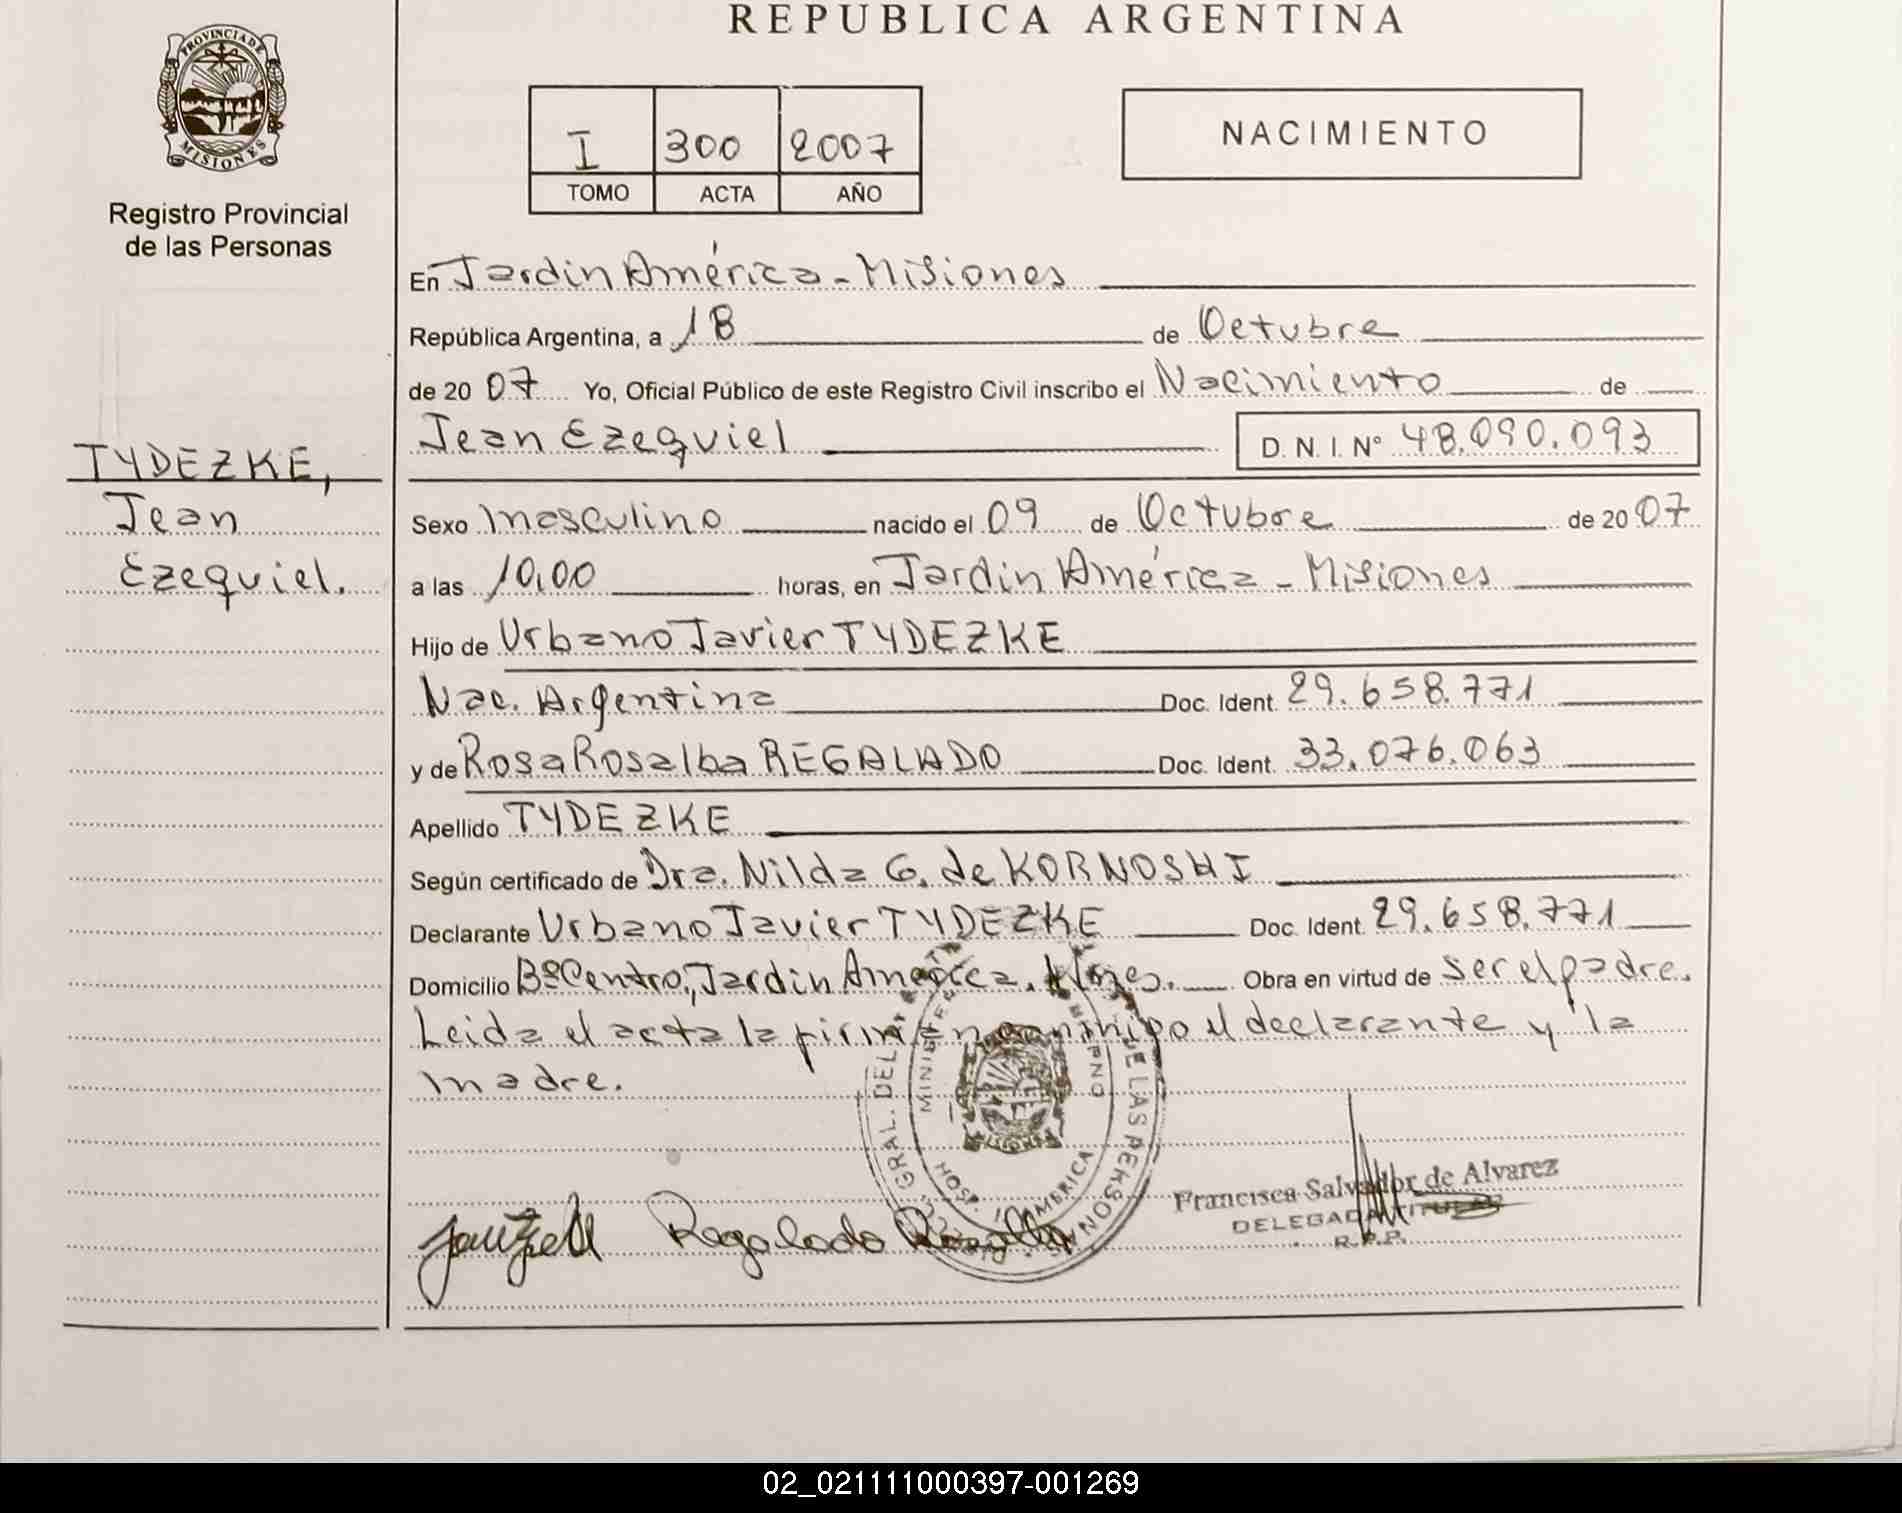 REPUBLICA ARGENTINA
PROVINCIA DE
MISIONES
Registro Provincial
de las Personas
I 300 2007
TOMO ACTA AÑO
NACIMIENTO
En Jardin América - Misiones
República Argentina, a 18 de Octubre
de 20 07 Yo, Oficial Público de este Registro Civil inscribo el Nacimiento de
Jean Ezequiel D. N. I. Nº 48.090.093
TYDEZKE,
Jean
Ezequiel.
Sexo masculino nacido el 09 de Octubre de 20 07
a las 10,00 horas, en Jardin América - Misiones
Hijo de Urbano Javier TYDEZKE
Nac. Argentina Doc. Ident. 29.658.771
y de Rosa Rosalba REGALADO Doc. Ident. 33.076.063
Apellido TYDEZKE
Según certificado de Dra. Nilda G. de KORNOSKI
Declarante Urbano Javier TYDEZKE Doc. Ident. 29.658.771
Domicilio Bº Centro, Jardin America. Mnes. Obra en virtud de ser el padre.
Leida el acta la firman conmigo el declarante y la
madre.
GRAL. DEL DE LAS PERSONAS
HOSP. AMERICA
Regalado Rosalba
Francisca Salvador de Alvarez
DELEGADA TITULAR
R.P.P.
02_021111000397-001269